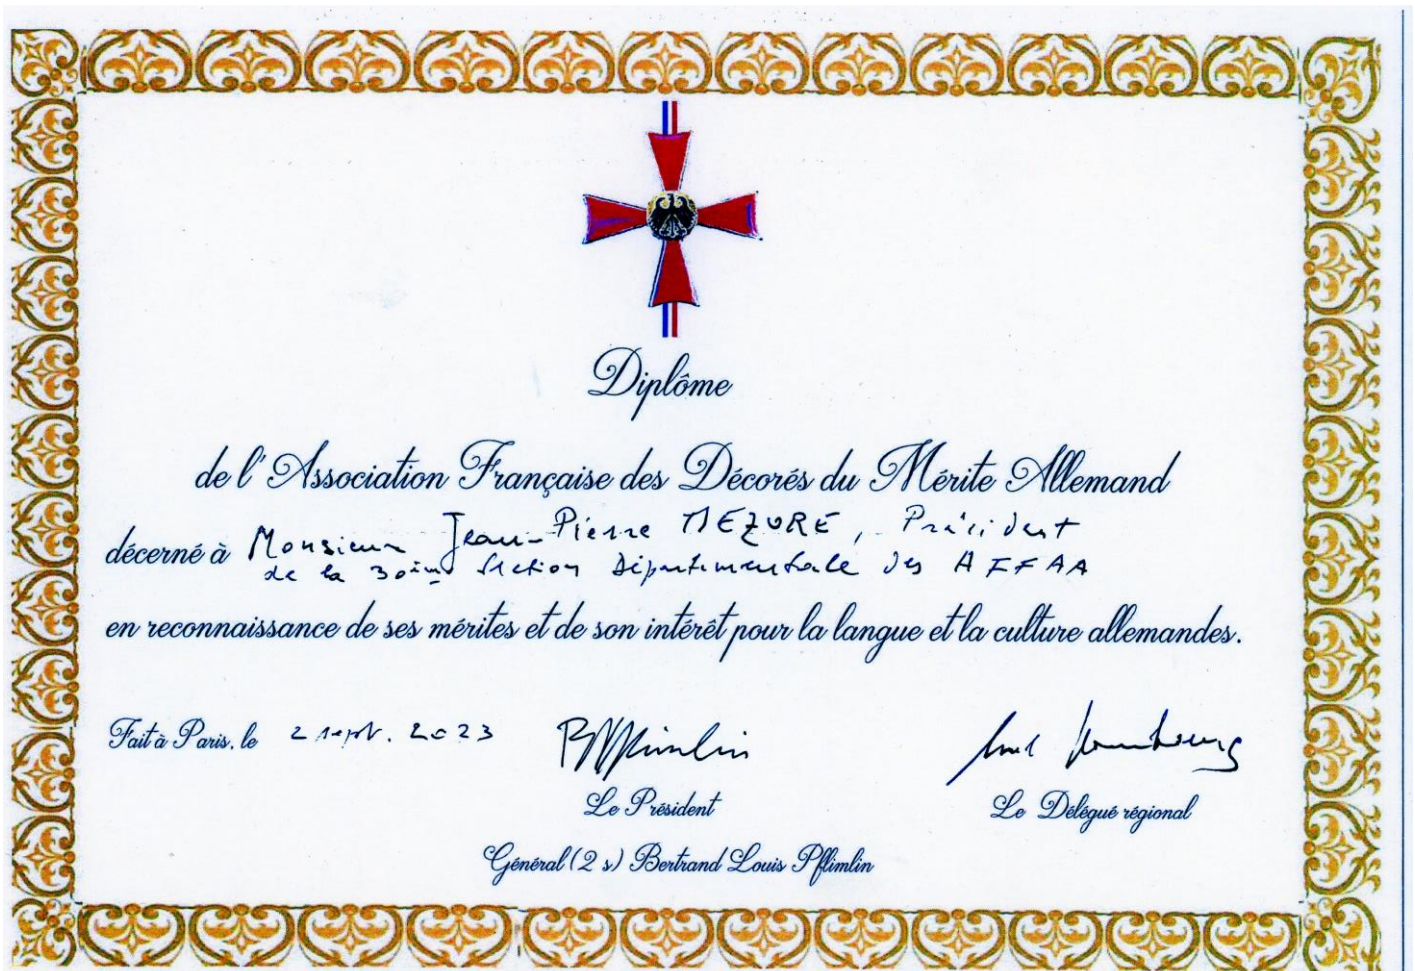 Diplôme
de l'Association Française des Décorés du Mérite Allemand
décerné à Monsieur Jean-Pierre MEZURE, Président
de la 30ième Section Départementale des AFFAA
en reconnaissance de ses mérites et de son intérêt pour la langue et la culture allemandes.
Fait à Paris, le 2 sept. 2023
Le Président
Le Délégué régional
Général (2 s) Bertrand Louis Pflimlin